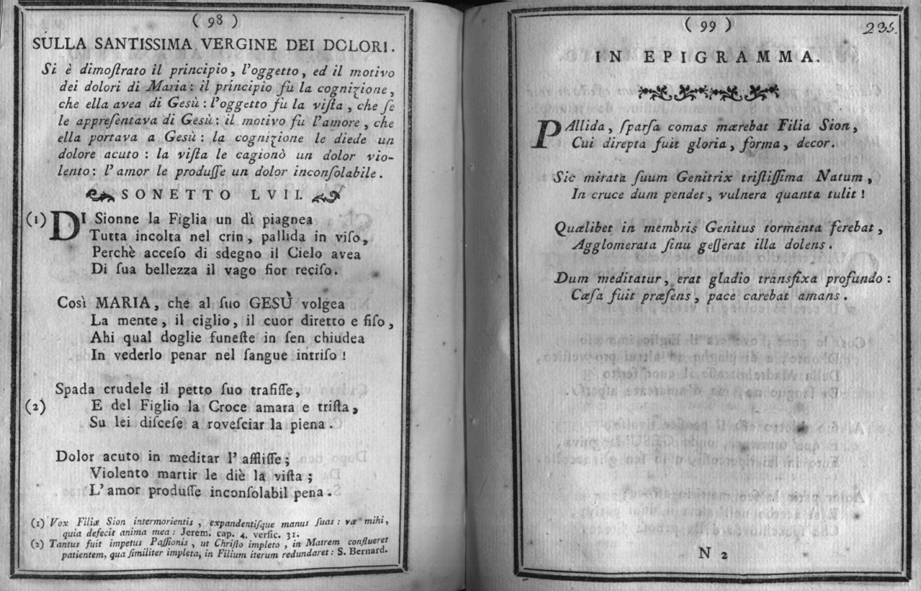 ( 98 )
SULLA SANTISSIMA VERGINE DEI DOLORI.
Si è dimoſtrato il principio, l'oggetto, ed il motivo
dei dolori di Maria: il principio fù la cognizione,
che ella avea di Gesù: l'oggetto fù la viſta, che ſe
le appreſentava di Gesù: il motivo fù l'amore, che
ella portava a Gesù: la cognizione le diede un
dolore acuto: la viſta le cagionò un dolor vio-
lento: l'amor le produſſe un dolor inconſolabile.
SONETTO LVII.
(1) DI Sionne la Figlia un dì piagnea
Tutta incolta nel crin, pallida in viſo,
Perchè acceſo di sdegno il Cielo avea
Di ſua bellezza il vago fior reciſo.
Così MARIA, che al ſuo GESÙ volgea
La mente, il ciglio, il cuor diretto e fiſo,
Ahi qual doglie funeſte in ſen chiudea
In vederlo penar nel ſangue intriſo!
Spada crudele il petto ſuo trafiſſe,
(2) E del Figlio la Croce amara e triſta,
Su lei diſceſe a roveſciar la piena.
Dolor acuto in meditar l'affliſſe;
Violento martir le diè la viſta;
L'amor produſſe inconſolabil pena.
(1) Vox Filiæ Sion intermorientis, expandentiſque manus ſuas: væ mihi,
quia defecit anima mea: Jerem. cap. 4. verſic. 31.
(2) Tantus fuit impetus Paſſionis, ut Chriſto impleto, in Matrem conflueret
patientem, qua ſimiliter impleta, in Filium iterum redundaret: S. Bernard.
( 99 )
235.
IN EPIGRAMMA.
PAllida, ſparſa comas mærebat Filia Sion,
Cui direpta fuit gloria, forma, decor.
Sic mirata ſuum Genitrix triſtiſſima Natum,
In cruce dum pendet, vulnera quanta tulit!
Quælibet in membris Genitus tormenta ferebat,
Agglomerata ſinu geſſerat illa dolens.
Dum meditatur, erat gladio transfixa profundo:
Cæſa fuit præſens, pace carebat amans.
N 2